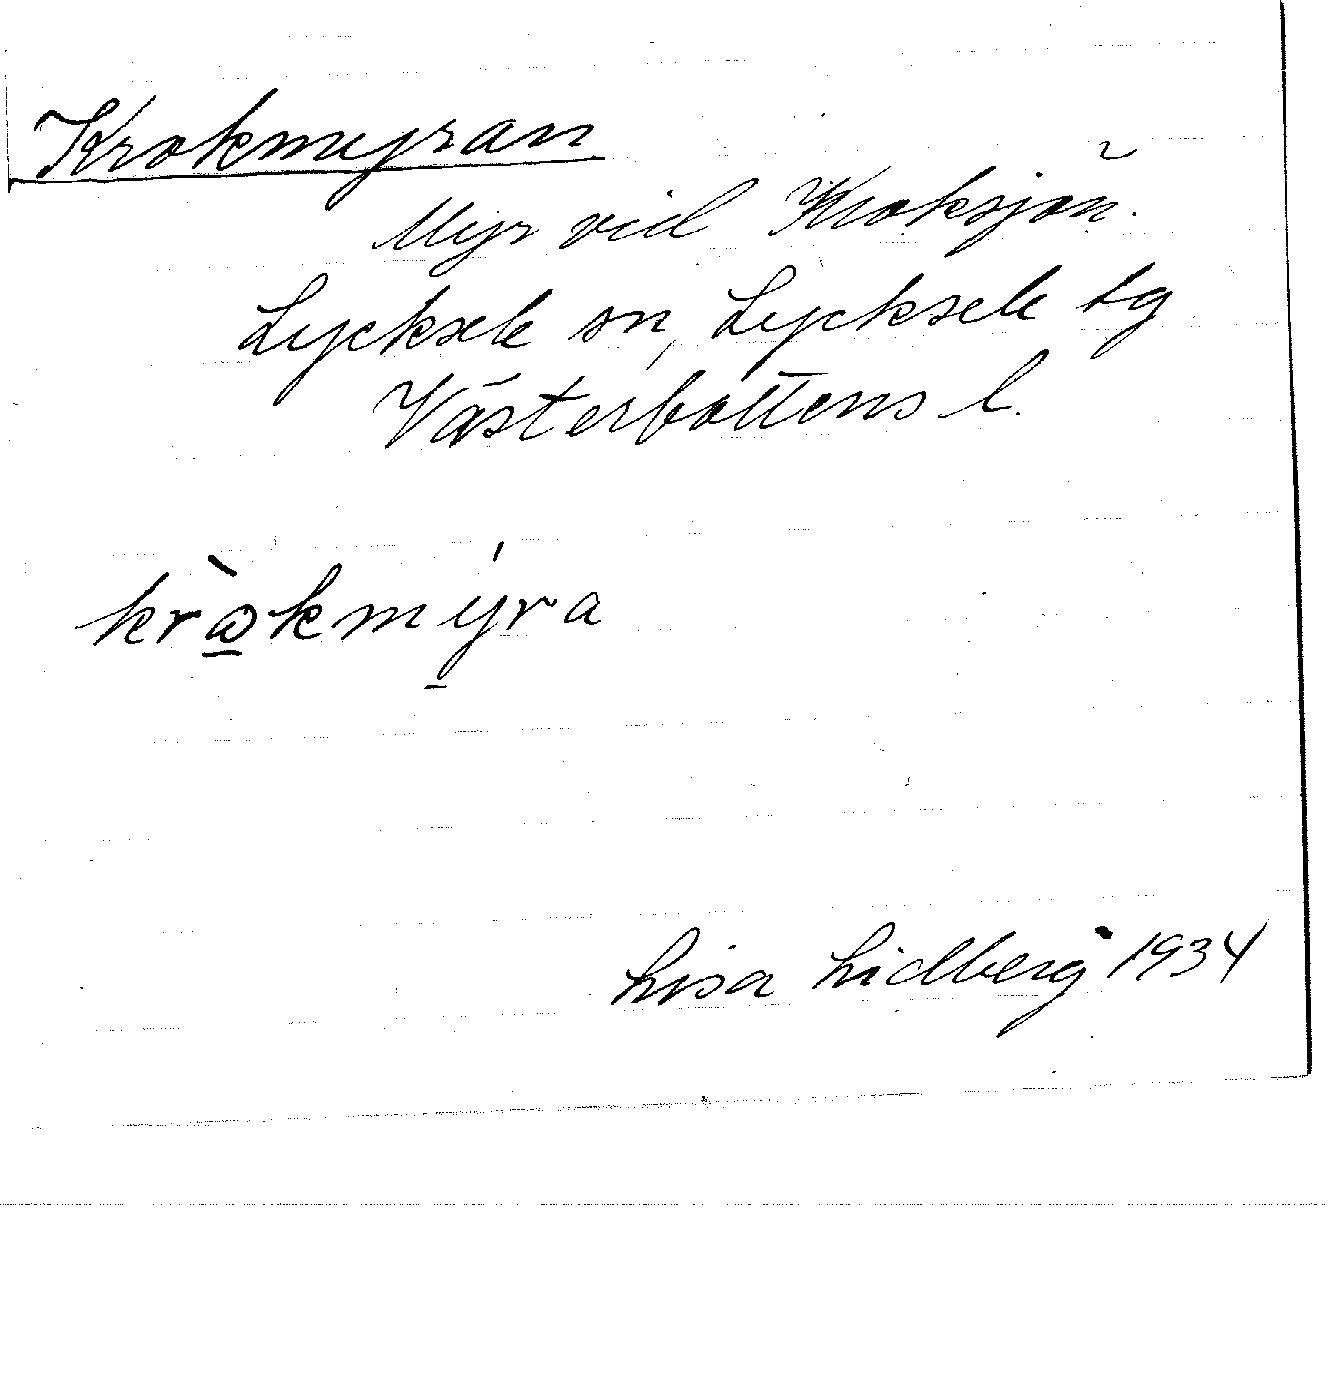 Krokmyran
Myr vid Kroksjön.
Lycksele sn, Lycksele tg
Västerbottens l.
kròkmýra
Lisa Lidberg 1934